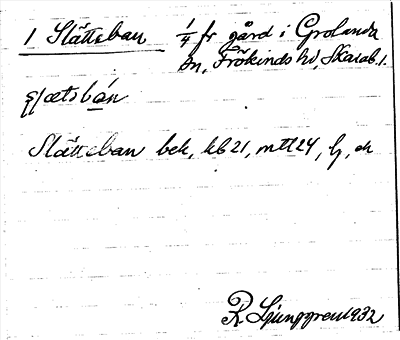 1 Slätteban 1/4 fr gård i Grolanda
sn, Frökinds hd, Skarab. l.
slætsbán
Slätteban bek, kb 21, mtl 24, lj, ek
R Ljunggren 1932